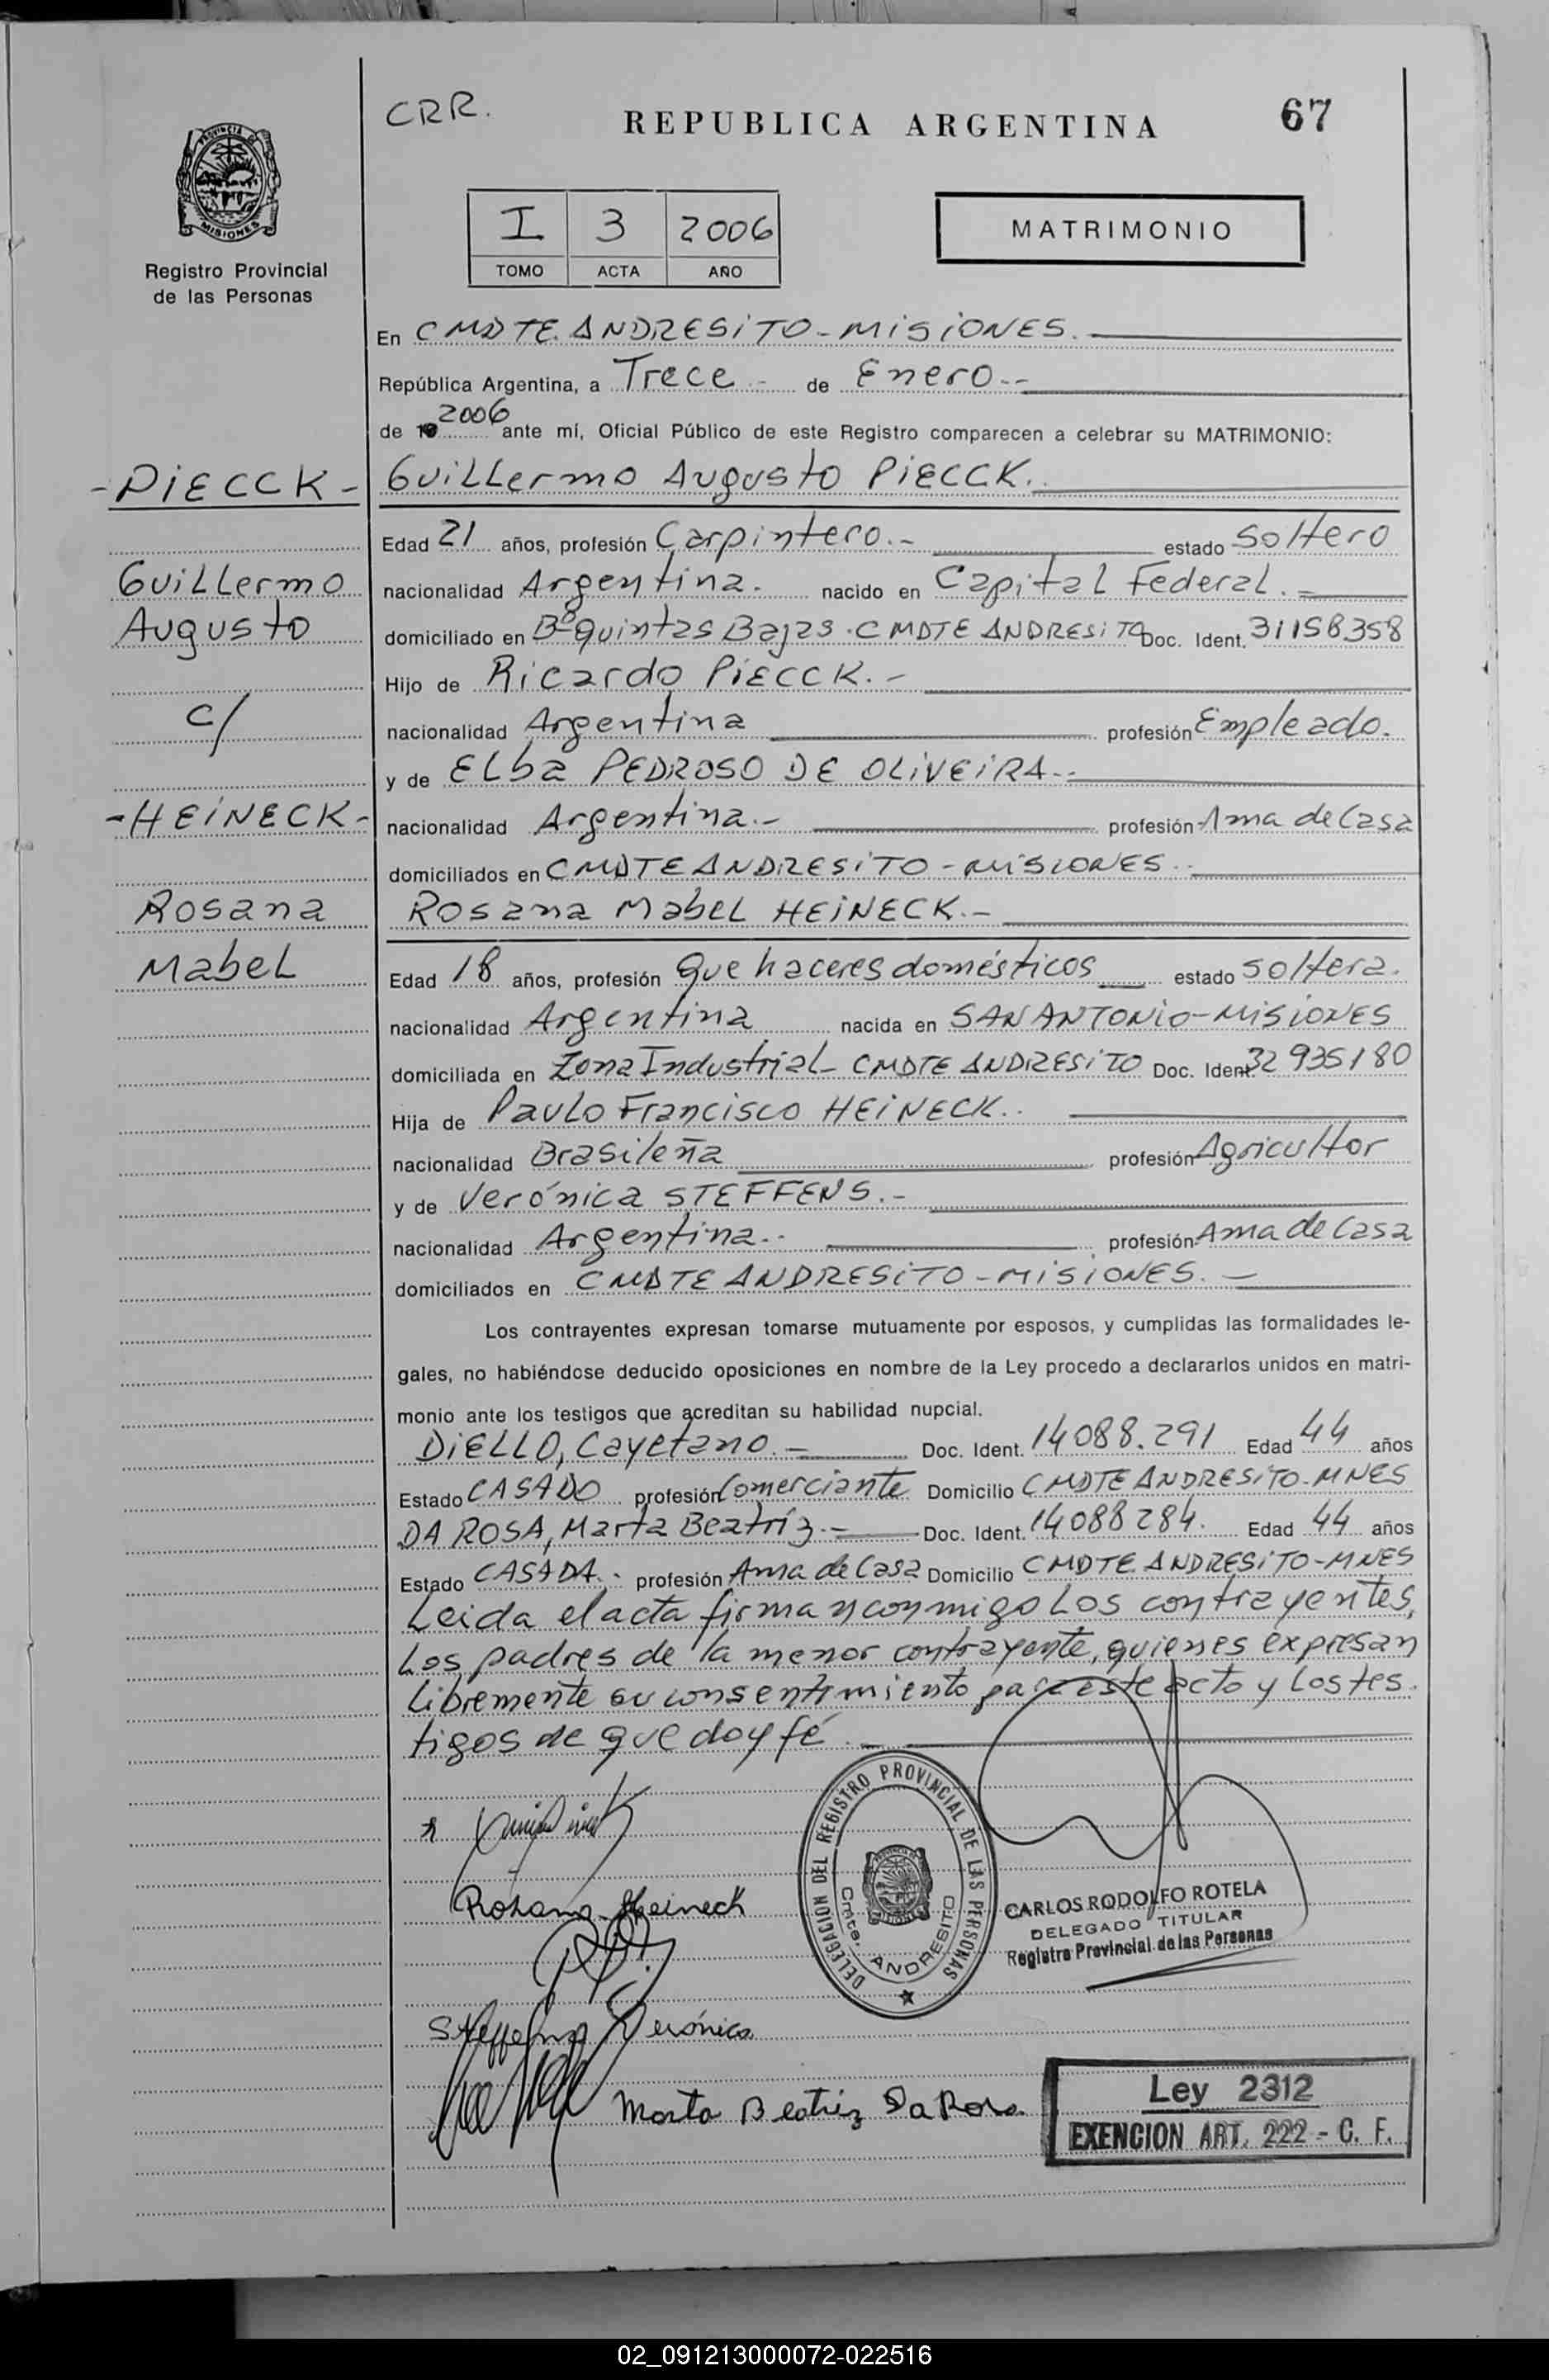 CRR.
REPUBLICA ARGENTINA
67
PROVINCIA DE MISIONES
Registro Provincial
de las Personas
I 3 2006
TOMO ACTA AÑO
MATRIMONIO
En CMDTE. ANDRESITO - MISIONES.
República Argentina, a Trece.- de Enero.-
de 19 2006 ante mí, Oficial Público de este Registro comparecen a celebrar su MATRIMONIO:
-PIECCK- Guillermo Augusto PIECCK.
Edad 21 años, profesión Carpintero.- estado Soltero
Guillermo nacionalidad Argentina. nacido en Capital Federal.-
Augusto domiciliado en Bº quintas Bajas. CMDTE ANDRESITO Doc. Ident. 31158358
Hijo de Ricardo PIECCK.-
c/ nacionalidad Argentina profesión Empleado.
y de Elba PEDROSO DE OLIVEIRA.-
-HEINECK- nacionalidad Argentina.- profesión Ama de Casa
domiciliados en CMDTE ANDRESITO - MISIONES.-
Rosana Rosana Mabel HEINECK.-
Mabel Edad 18 años, profesión Que haceres domésticos estado soltera.
nacionalidad Argentina nacida en SAN ANTONIO-MISIONES
domiciliada en Zona Industrial - CMDTE ANDRESITO Doc. Ident. 32935180
Hija de Paulo Francisco HEINECK..
nacionalidad Brasileña profesión Agricultor
y de Verónica STEFFENS.-
nacionalidad Argentina.. profesión Ama de Casa
domiciliados en CMDTE ANDRESITO - MISIONES.-
Los contrayentes expresan tomarse mutuamente por esposos, y cumplidas las formalidades le-
gales, no habiéndose deducido oposiciones en nombre de la Ley procedo a declararlos unidos en matri-
monio ante los testigos que acreditan su habilidad nupcial.
DIELLO, Cayetano.- Doc. Ident. 14088.291 Edad 44 años
Estado CASADO profesión Comerciante Domicilio CMDTE ANDRESITO-MNES
DA ROSA, Marta Beatríz.- Doc. Ident. 14088284. Edad 44 años
Estado CASADA.- profesión Ama de Casa Domicilio CMDTE. ANDRESITO-MNES
Leida el acta firman conmigo Los contrayentes,
Los padres de la menor contrayente, quienes expresan
Libremente su consentimiento para este acto y Los tes.
tigos de que doy fé.-
DELEGACION DEL REGISTRO PROVINCIAL DE LAS PERSONAS
Cmte. ANDRESITO
Rosana Heineck
CARLOS RODOLFO ROTELA
DELEGADO TITULAR
Registro Provincial de las Personas
Steffens Verónica
Marta Beatriz Da Rosa
Ley 2312
EXENCION ART. 222 - C. F.
02_091213000072-022516